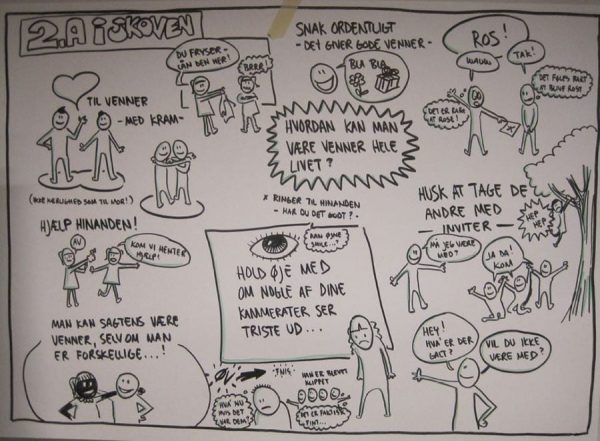 2.A i SKOVEN
DU FRYSER -
LÅN DEN HER!
BRRR
SNAK ORDENTLIGT
- DET GIVER GODE VENNER -
BLA BLA
ROS!
WAUW
TAK!
DET ER RART
AT ROSE!
DET FØLES RART
AT BLIVE ROST
TIL VENNER
- MED KRAM -
(IKKE KÆRLIGHED SOM TIL MOR!)
HVORDAN KAN MAN
VÆRE VENNER HELE
LIVET?
* RINGER TIL HINANDEN
- HAR DU DET GODT? -
HUSK AT TAGE DE
ANDRE MED
- INVITER -
HEP
HEP
MÅ JEG VÆRE
MED?
JA DA!
KOM
HJÆLP HINANDEN!
AV
KOM VI HENTER
HJÆLP!
KAN ØJNE
SMILE...?
HOLD ØJE MED
OM NOGLE AF DINE
KAMMERATER SER
TRISTE UD...
MAN KAN SAGTENS VÆRE
VENNER, SELVOM MAN
ER FORSKELLIGE...!
FNIS
HAN ER BLEVET
KLIPPET
HVA' NU
HVIS DET
VAR DEM?
DET ER FAKTISK
FINT...
HEY!
HVA' ER DER
GALT?
VIL DU IKKE
VÆRE MED?